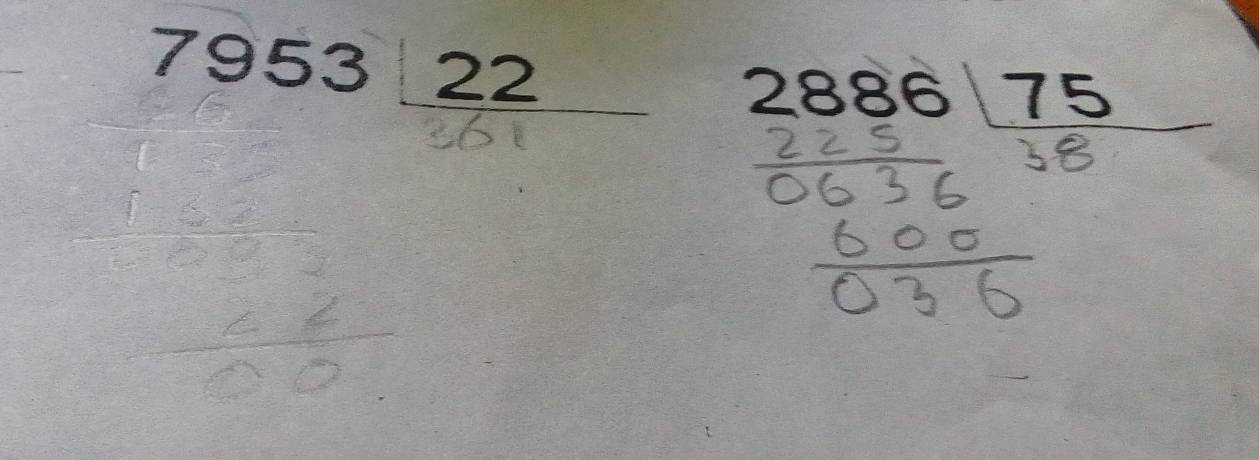 7953 22
66 361
135
132
0033
22
00
2886 75
225 38
0636
600
036